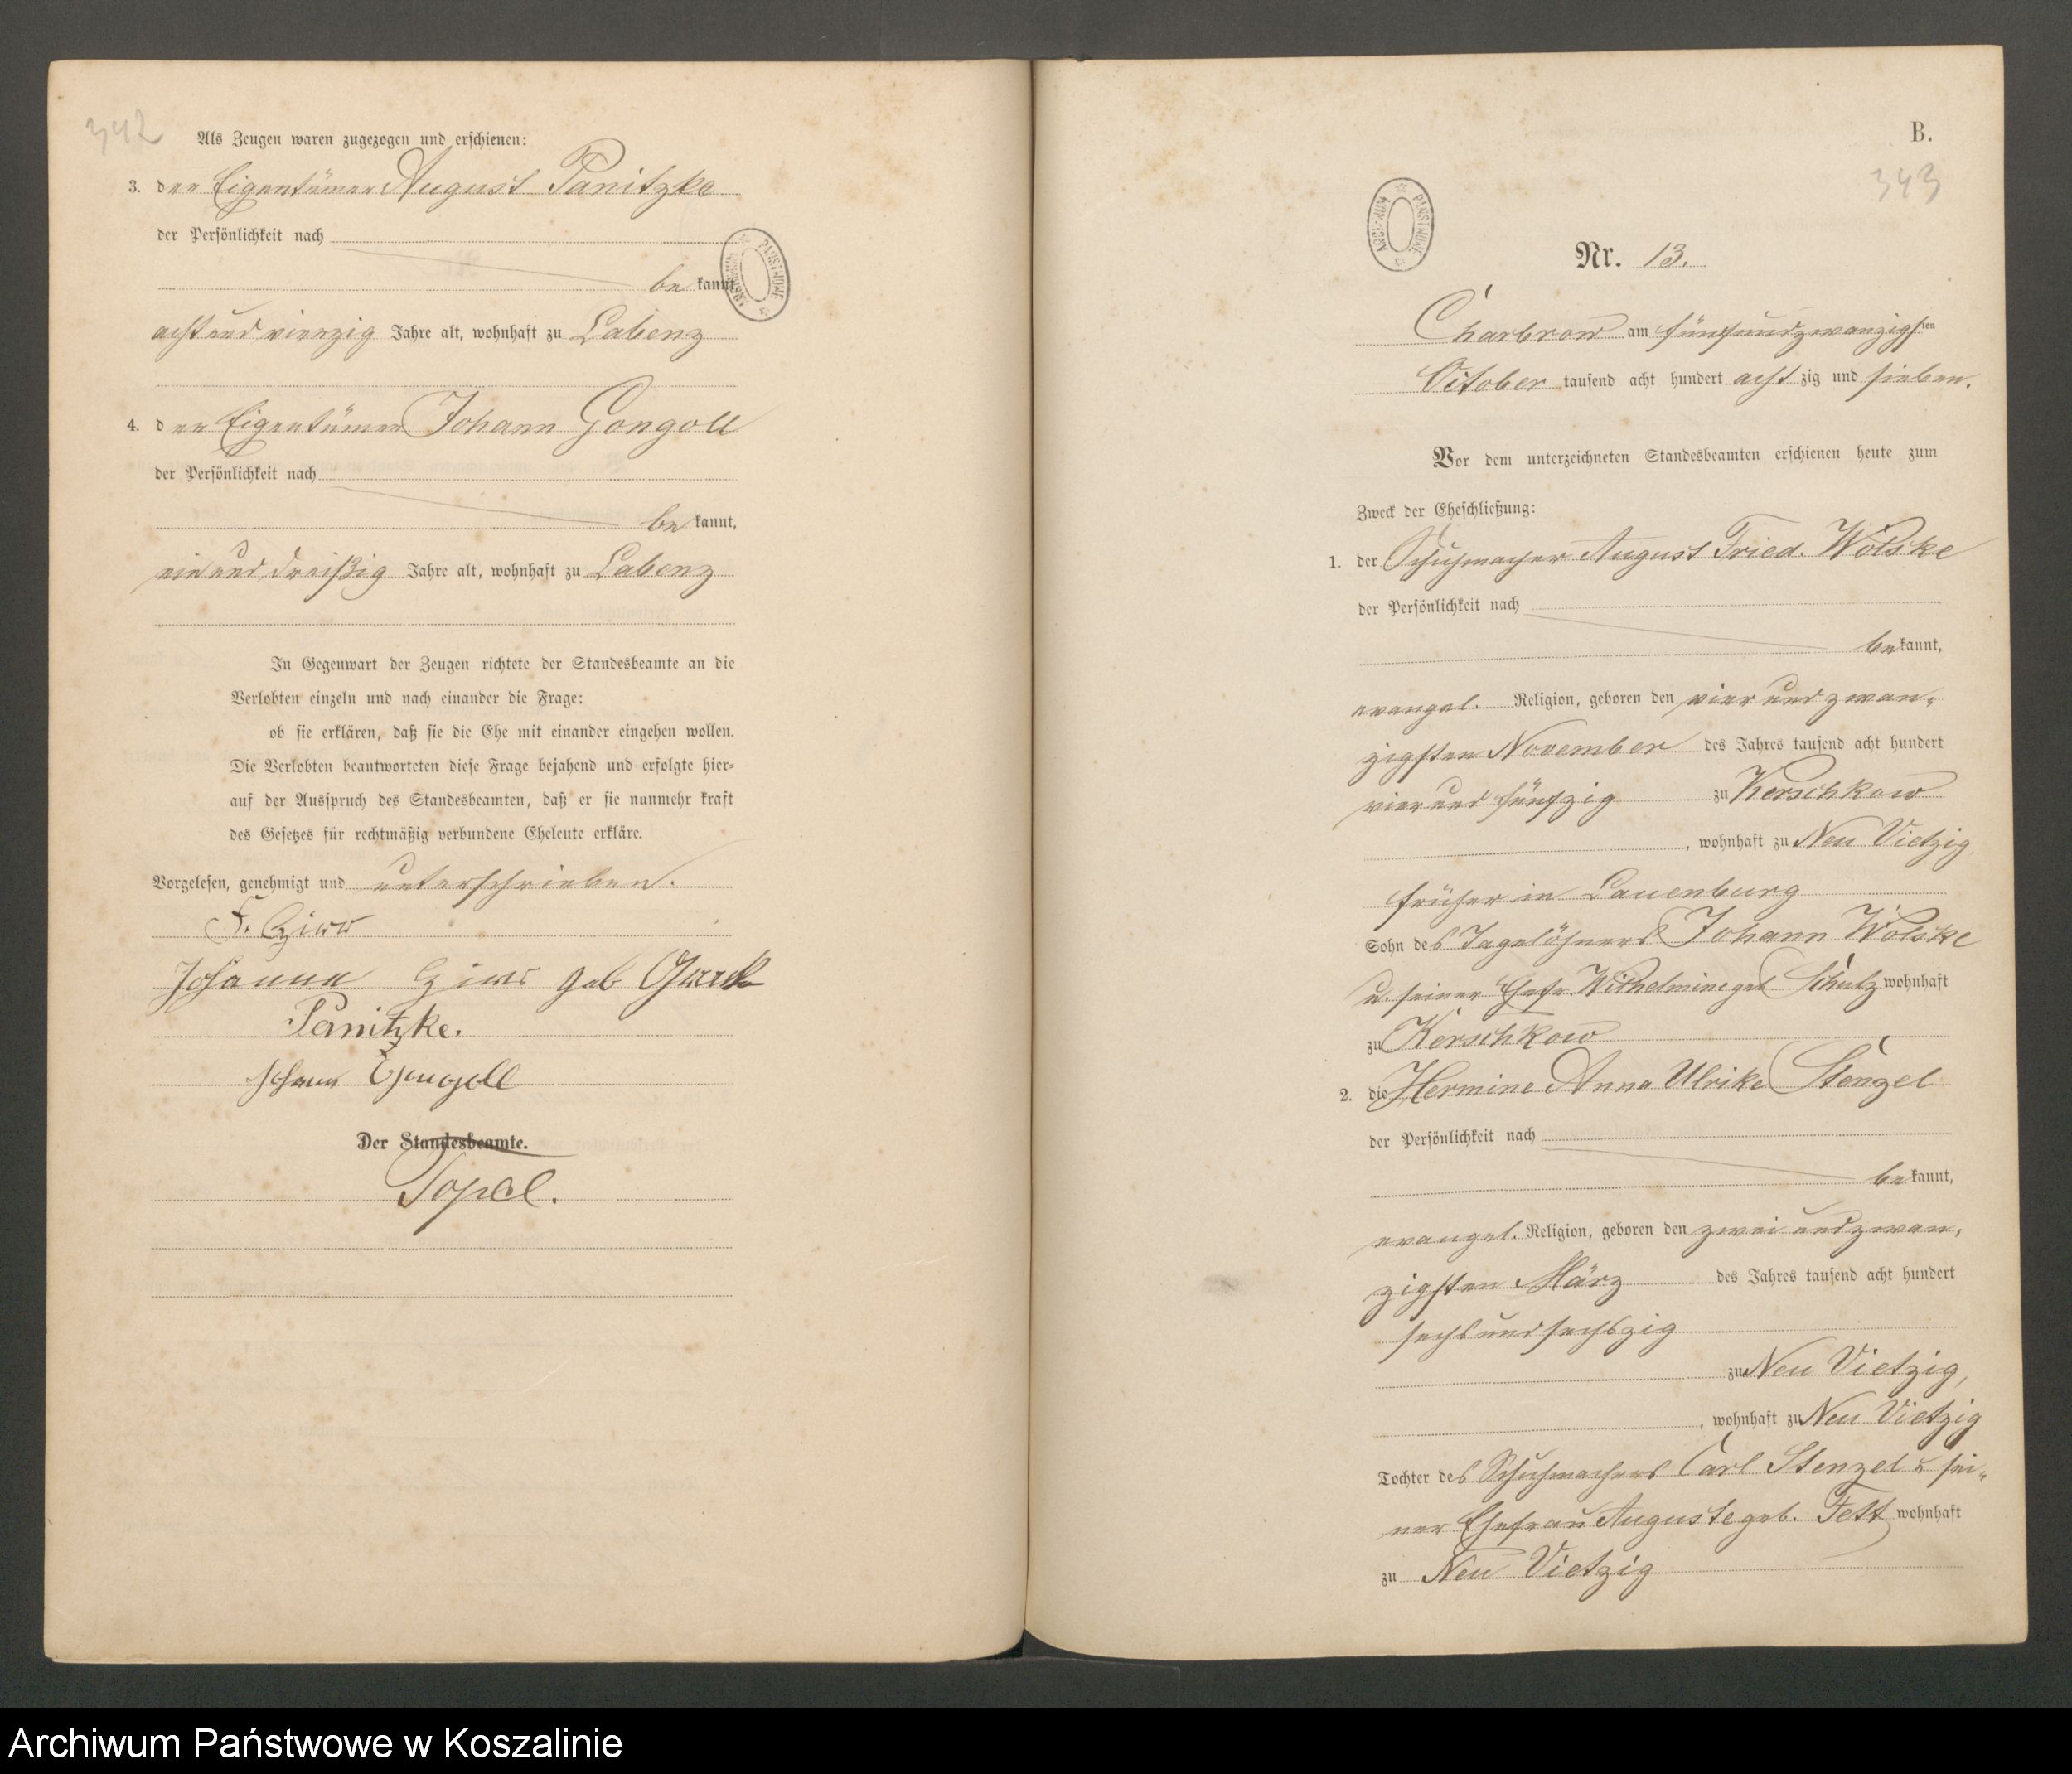 342
Als Zeugen waren zugezogen und erschienen:
3. der Eigentümer August Panitzke
der Persönlichkeit nach
be kannt,
achtundvierzig Jahre alt, wohnhaft zu Labenz
4. der Eigentümer Johann Gongoll
der Persönlichkeit nach
be kannt,
einunddreißig Jahre alt, wohnhaft zu Labenz
In Gegenwart der Zeugen richtete der Standesbeamte an die
Verlobten einzeln und nach einander die Frage:
ob sie erklären, daß sie die Ehe mit einander eingehen wollen.
Die Verlobten beantworteten diese Frage bejahend und erfolgte hier-
auf der Ausspruch des Standesbeamten, daß er sie nunmehr kraft
des Gesetzes für rechtmäßig verbundene Eheleute erkläre.
Vorgelesen, genehmigt und unterschrieben.
F.
Johanna geb
Panitzke.
Johann Gongoll
Der Standesbeamte.
Topel.
ARCHIWUM PAŃSTWOWE
B.
343
ARCHIWUM PAŃSTWOWE
Nr. 13.
Charbrow am fünfundzwanzigsten
October tausend acht hundert achtzig und sieben.
Vor dem unterzeichneten Standesbeamten erschienen heute zum
Zweck der Eheschließung:
1. der Schuhmacher August Fried. Wölske
der Persönlichkeit nach
be kannt,
evangel. Religion, geboren den vier und zwan-
zigsten November des Jahres tausend acht hundert
vier und fünfzig zu Kerschkow
, wohnhaft zu Neu Vietzig
früher in Lauenburg
Sohn des Tagelöhners Johann Wölske
u. seiner Ehefr. Wilhelmine geb Schulz wohnhaft
zu Kerschkow
2. die Hermine Anna Ulrike Stenzel
der Persönlichkeit nach
be kannt,
evangel. Religion, geboren den zwei und zwan-
zigsten März des Jahres tausend acht hundert
sechsundsechszig
zu Neu Vietzig,
, wohnhaft zu Neu Vietzig
Tochter des Schuhmachers Carl Stenzel u sei-
ner Ehefrau Auguste geb. Fett wohnhaft
zu Neu Vietzig
Archiwum Państwowe w Koszalinie